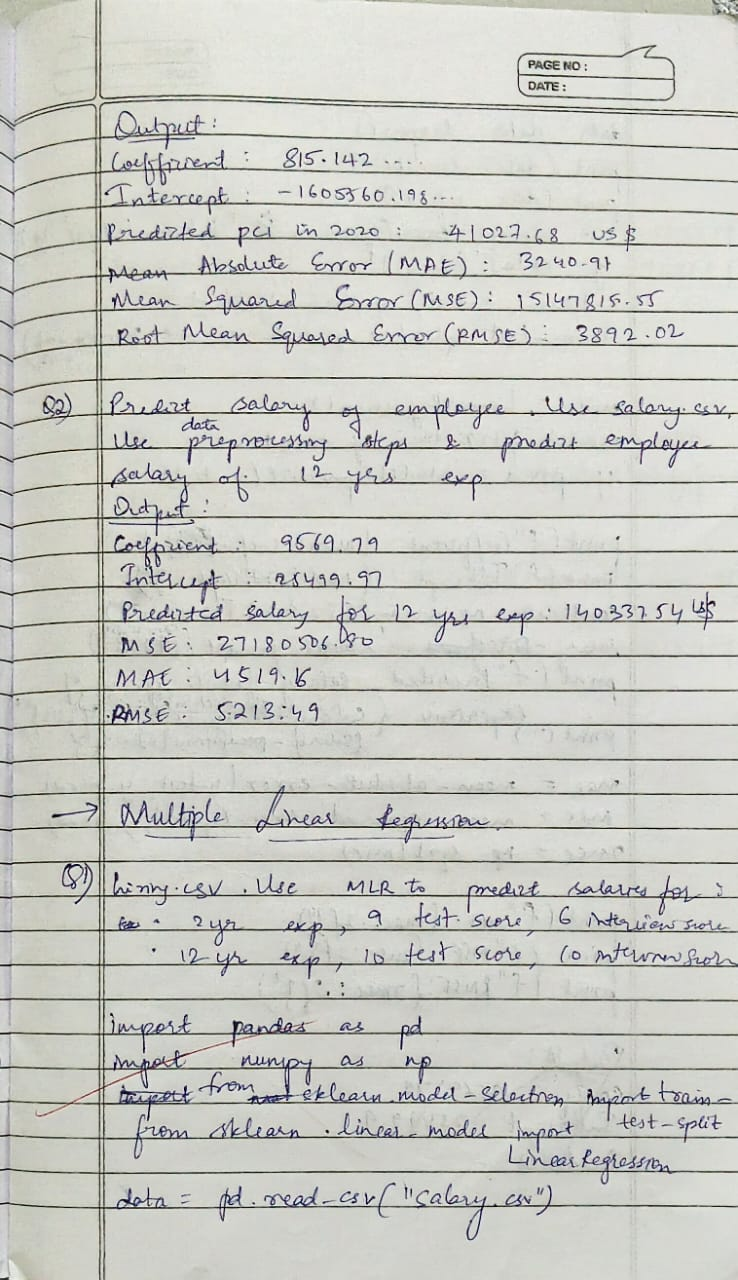 PAGE NO :
DATE :
Output :
Coefficient : 815.142 ....
Intercept : -1605560.198...
Predicted pci in 2020 : 41027.68 US $
Mean Absolute Error (MAE) : 3240.91
Mean Squared Error (MSE) : 15147815.55
Root Mean Squared Error (RMSE) : 3892.02
Q2) Predict salary of employee. Use salary.csv,
Use data preprocessing steps & predict employee
salary of 12 yrs exp
Output :
Coefficient : 9569.79
Intercept : 25499.97
Predicted salary for 12 yrs exp : 140337.54 US$
MSE : 27180506.80
MAE : 4519.16
RMSE : 5213.49
→ Multiple Linear Regression.
Q1) hiring.csv. Use MLR to predict salaries for :
• 2yr exp, 9 test score, 6 interview score
• 12 yr exp, 10 test score, 10 interview score
∴
import pandas as pd
import numpy as np
from sklearn.model-selection import train-
test-split
from sklearn.linear-model import
LinearRegression
data = pd.read-csv("salary.csv")